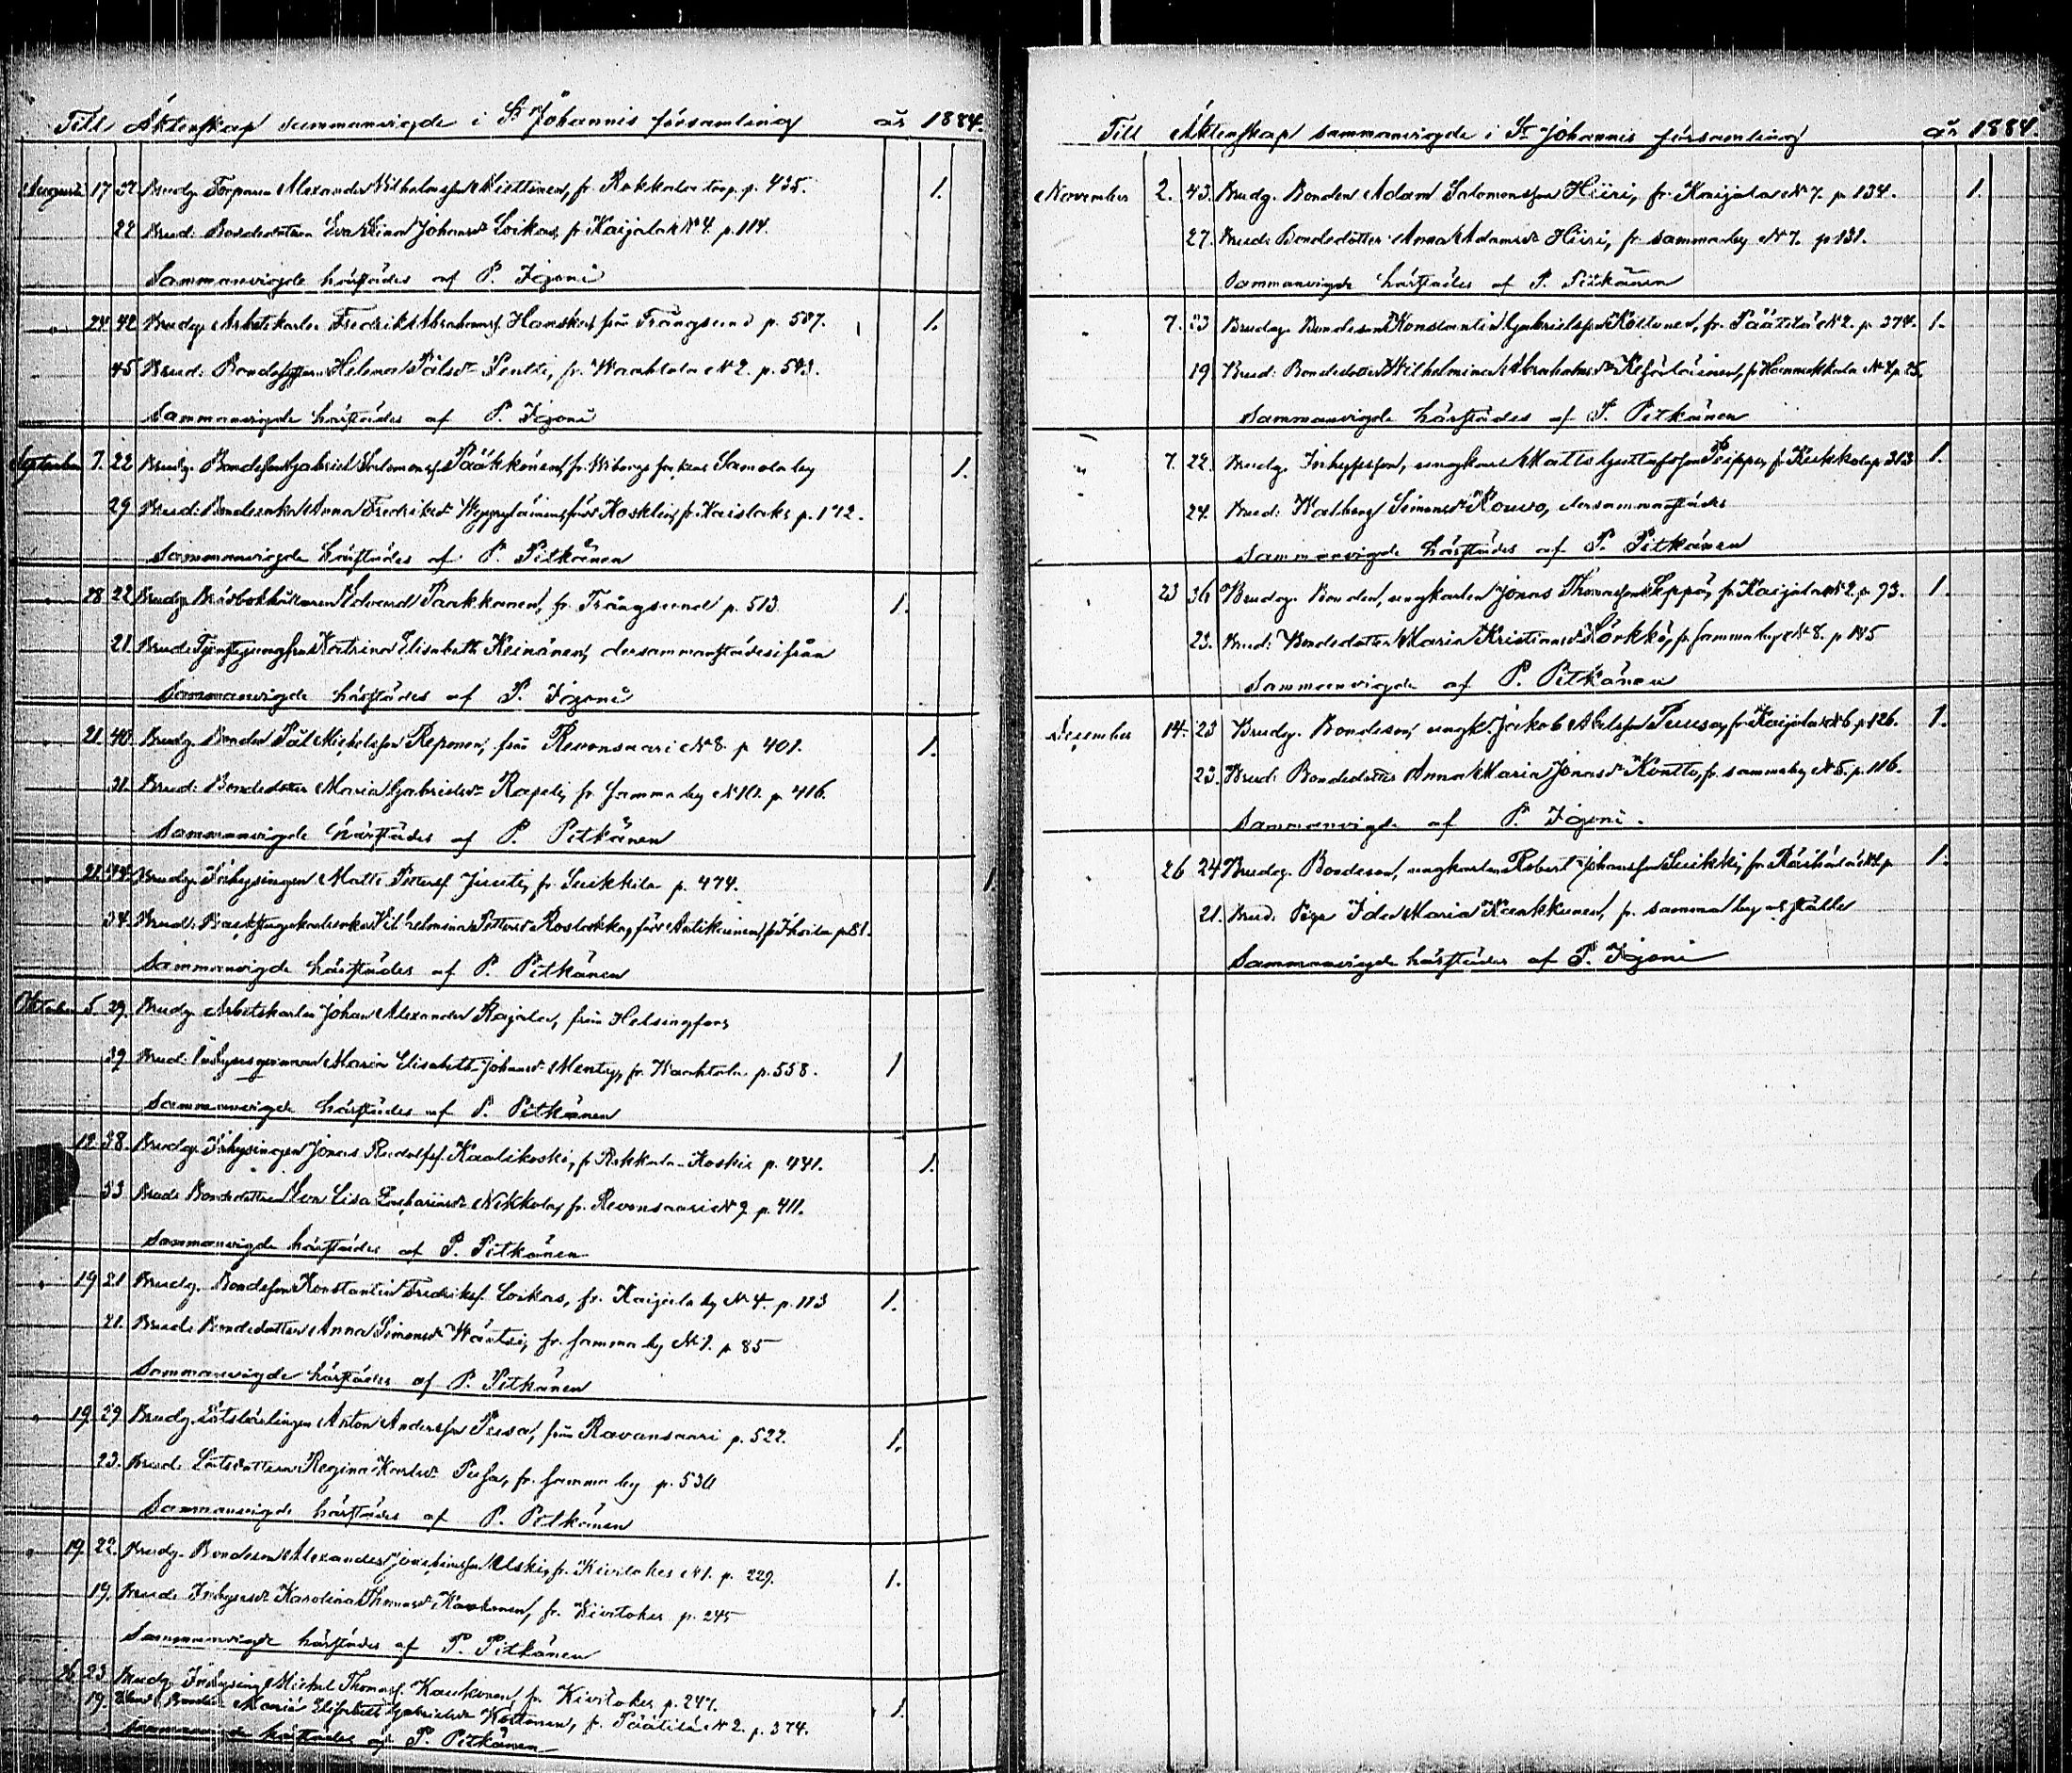 Till Äktenskap sammanvigde i St Johannis församling år 1884.
Augusti 17 Brudg. Torparen Alexander Vilhelmsson Kiettinen, fr. Rokkala torp. p. 435. 1.
22 Brud. Bondedottren Eva Stina Johansdr Loikas, fr. Kaijala N 4. p. 114.
Sammanvigde härstädes af P. Igoni
24 42 Brudg. Arbetskarlen Fredrik Abrahamsf. Hanski från Trångsund p. 587. 1.
45 Brud. Helena Pålsdr Pentti, fr. Waahtola N 2. p. 543.
Sammanvigde härstädes af P. Igoni
September 7. 22 Brudg. Bondeson Gabriel Salomonsf. Pääkkönen, fr. Wiborgs Samola by 1.
29 Brud. Bondeenkan Anna Fredriksdr född Koskli, fr. Kaislaks p. 172.
Sammanvigde härstädes af P. Pitkänen
28 22 Brudg. Edvard Paakkanen, fr. Trångsund p. 513. 1.
21 Brud. Katrina Elisabeth Keinänen, dersammastädesifrån
Sammanvigde härstädes af P. Igoni
21 40 Brudg. Bonden Pål Michelsson Reponen, från Revonsaari N 8. p. 401. 1.
31. Brud. Bondedotter Maria Gabrielsdr Rapeli, fr. samma by N 10. p. 416.
Sammanvigde härstädes af P. Pitkänen
21 44. Brudg. Inhysingen Matts Pettersf. Junti, fr. Suikkila p. 474. 1.
34. Brud. Vilhelmina Pettersdr född Antikainen, p. 81.
Sammanvigde härstädes af P. Pitkänen
Oktober 5 29. Brudg. Arbetskarlen Johan Alexander Rajala, från Helsingfors
39 Brud. Maria Elisabeth Johansdr Menty, fr. Waahtola p. 558. 1
Sammanvigde härstädes af P. Pitkänen
12. 38. Brudg. Inhysingen Jonas Rudolfsf. Kaalikoski, fr. Rokkala-Koski p. 441. 1.
53 Brud. Bondedottren Eva Lisa Zachariasdr Nikkola, fr. Revonsaari N 9. p. 411.
Sammanvigde härstädes af P. Pitkänen
19 21 Brudg. Bondeson Konstantin Fredriksf. Loikas, fr. Kaijala by N 4. p. 113 1.
21. Brud. Bondedotter Anna Simonsdr Wäntsi, fr. samma by N 1. p. 85
Sammanvigde härstädes af P. Pitkänen
19. 29 Brudg. Anton Andersson Pusa, från Ravansaari p. 522. 1.
23. Brud. Regina Karlsdr Pusa, fr. samma by p. 530
Sammanvigde härstädes af P. Pitkänen
19. 22. Brudg. Bondeson Alexander Joachimsson Ulski, fr. Kiviloks N 1. p. 229. 1.
19. Brud. Inhysesdr Karolina Thomasdr Kaukonen, fr. Kiviloks p. 245
Sammanvigde härstädes af P. Pitkänen
26 23 Brudg. Inhysing Michel Thomasf. Kaukonen, fr. Kiviloks p. 247.
19. Brud. Maria Elisabeth Gabrielsdr Kottonen, fr. Päätilä N 2. p. 374. 1.
härstädes af P. Pitkänen
Till Äktenskap sammanvigde i St Johannis församling år 1884.
November 2. 43. Brudg. Bonden Adam Salomonsson Hiiri, fr. Kaijala N 7. p. 134. 1.
27. Brud. Bondedotter Anna Adamsdr Hiiri, fr. samma by N 7. p. 131.
Sammanvigde härstädes af P. Pitkänen
7. 23 Brudg. Bondeson Konstantin Gabrielsson Kottonen, fr. Päätilä N 2. p. 374. 1.
19 Brud. Bondedotter Wilhelmina Abrahamsdr fr. Hannukkala N 4 p. 25.
Sammanvigde härstädes af P. Pitkänen
7. 22. Brudg. ungkarl Matts Gustafsson Peippo, fr. Kukkola p. 313 1.
24. Brud. Walborg Simonsdr Rouvo, dersammastädes
Sammanvigde härstädes af P. Pitkänen
23 36 Brudg. Bonden, ungkarlen Jonas Thomasson Seppä, fr. Kaijala N 2. p. 93. 1.
23. Brud. Bondedotter Maria Kristiansdr Körkkö, fr. samma by N 8. p. 145
Sammanvigde af P. Pitkänen
December 14. 23 Brudg. Bondeson, ungk. Jakob Abelsson Tuusa, fr. Kaijala N 6 p. 126. 1.
23. Brud. Bondedotter Anna Maria Jonasdr Kontto, fr. samma by N 5. p. 116.
Sammanvigde af P. Igoni.
26 24 Brudg. Bondeson, ungkarlen Robert Johansson Suikki, fr. Räihälä p 1.
21. Brud. Piga Ida Maria Kaukkunen, fr. samma by
Sammanvigde härstädes af P. Igoni